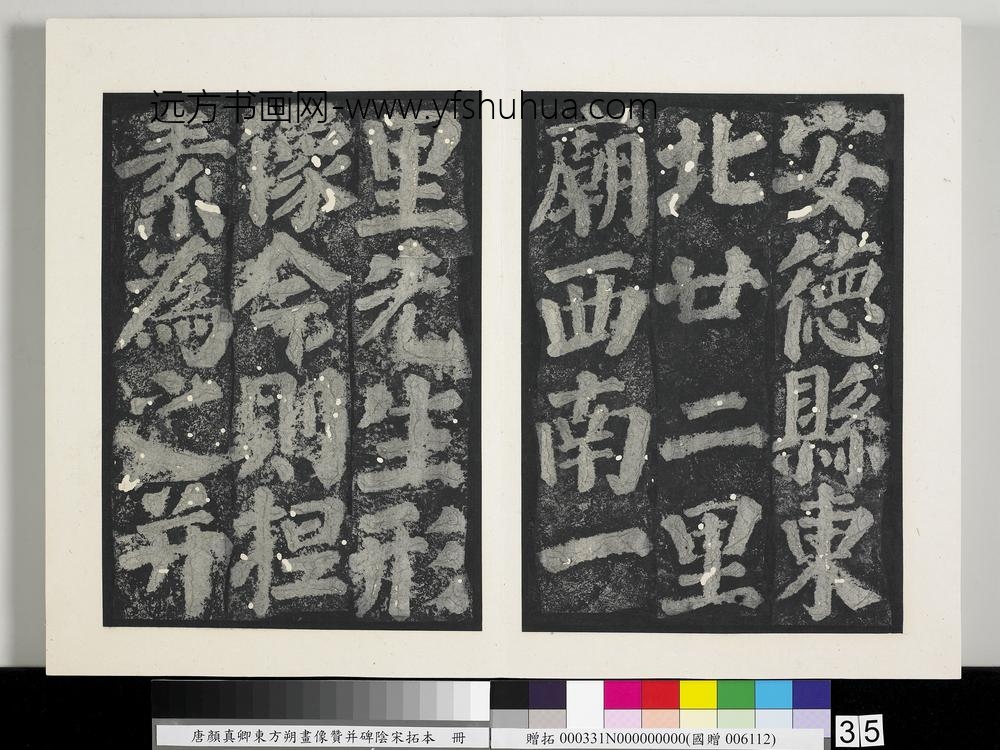 远方书画网-www.yfshuhua.com
安德縣東
北廿二里
廟西南一
里先生形
像今則捏
素為之并
唐顏真卿東方朔畫像贊并碑陰宋拓本 冊
贈拓 000331N000000000(國贈 006112)
35